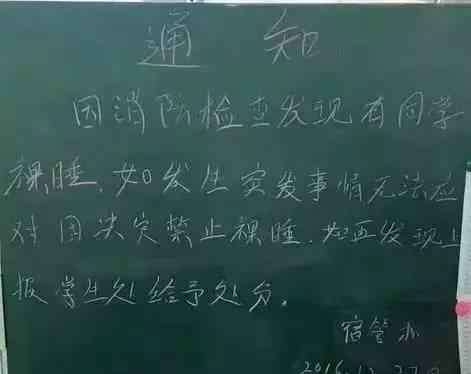 通 知
因消防检查发现有同学
裸睡、如发生突发事情无法应
对因决定禁止裸睡.如再发现上
报学生处给予处分。
宿管办